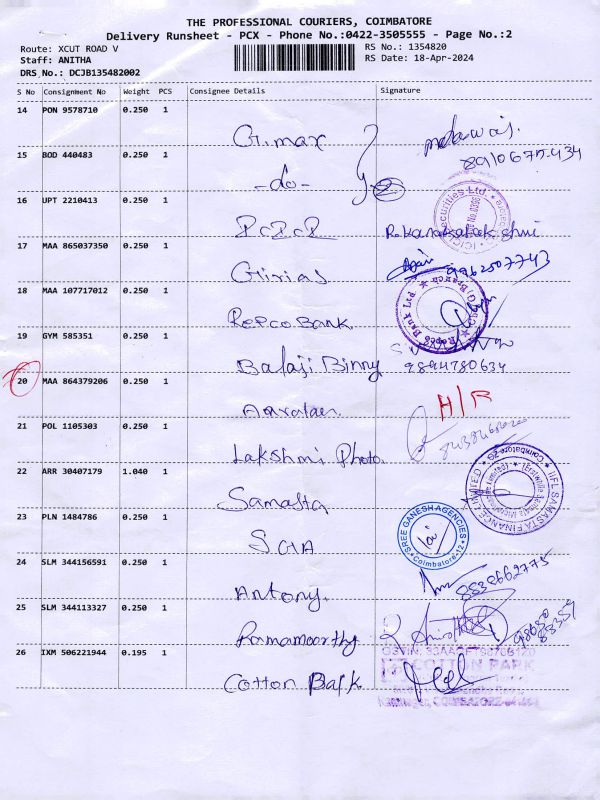 THE PROFESSIONAL COURIERS, COIMBATORE
Delivery Runsheet - PCX - Phone No.:0422-3505555 - Page No.:2
Route: XCUT ROAD V
RS No.: 1354820
Staff: ANITHA
RS Date: 18-Apr-2024
DRS No.: DCJB135482002
S No Consignment No Weight PCS Consignee Details Signature
14 PON 9578710 0.250 1
Grimax
8910675434
15 BOD 440483 0.250 1
-do-
2
16 UPT 2210413 0.250 1
ICICI Securities Ltd.
17 MAA 865037350 0.250 1
Girias
9962507743
18 MAA 107717012 0.250 1
Repco Bank
Repco Bank Ltd
19 GYM 585351 0.250 1
Balaji Binny
9894780634
20 MAA 864379206 0.250 1
H/R
21 POL 1105303 0.250 1
Lakshmi Photo.
22 ARR 30407179 1.040 1
Samasta
IIFL SAMASTA FINANCE LIMITED
Coimbatore
23 PLN 1484786 0.250 1
SREE GANESH AGENCIES
Coimbatore-12
24 SLM 344156591 0.250 1
Antony.
8838662775
25 SLM 344113327 0.250 1
Ramamoorthy
26 IXM 506221944 0.195 1
COTTON PARK